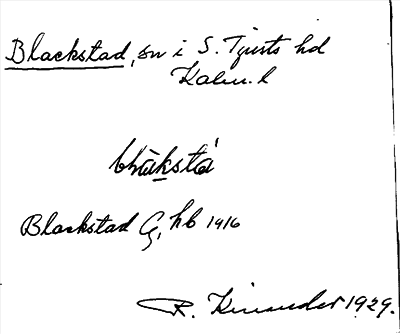 Blackstad, sn i S. Tjusts hd
Kalm. l
Blackstad G, hb 1916
R. Kinander 1929.